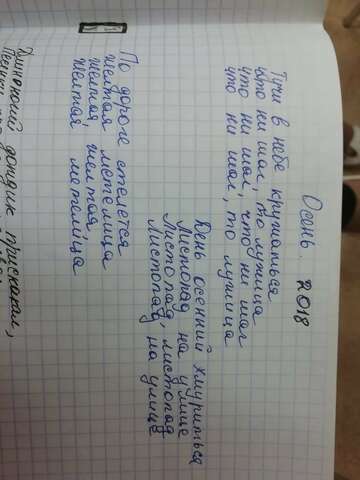 Осень. 2018
Тучи в небе кружаться
что ни шаг, то лужица
что ни шаг, что ни шаг
что ни шаг, то лужица
День осенний хмуриться
Листопад на улице
Листопад, листопад
Листопад, на улице
По дороге стелется
Желтая метелица
Желтая, желтая,
Желтая метелица
Длиноногий дождик прискакал,
Песенки